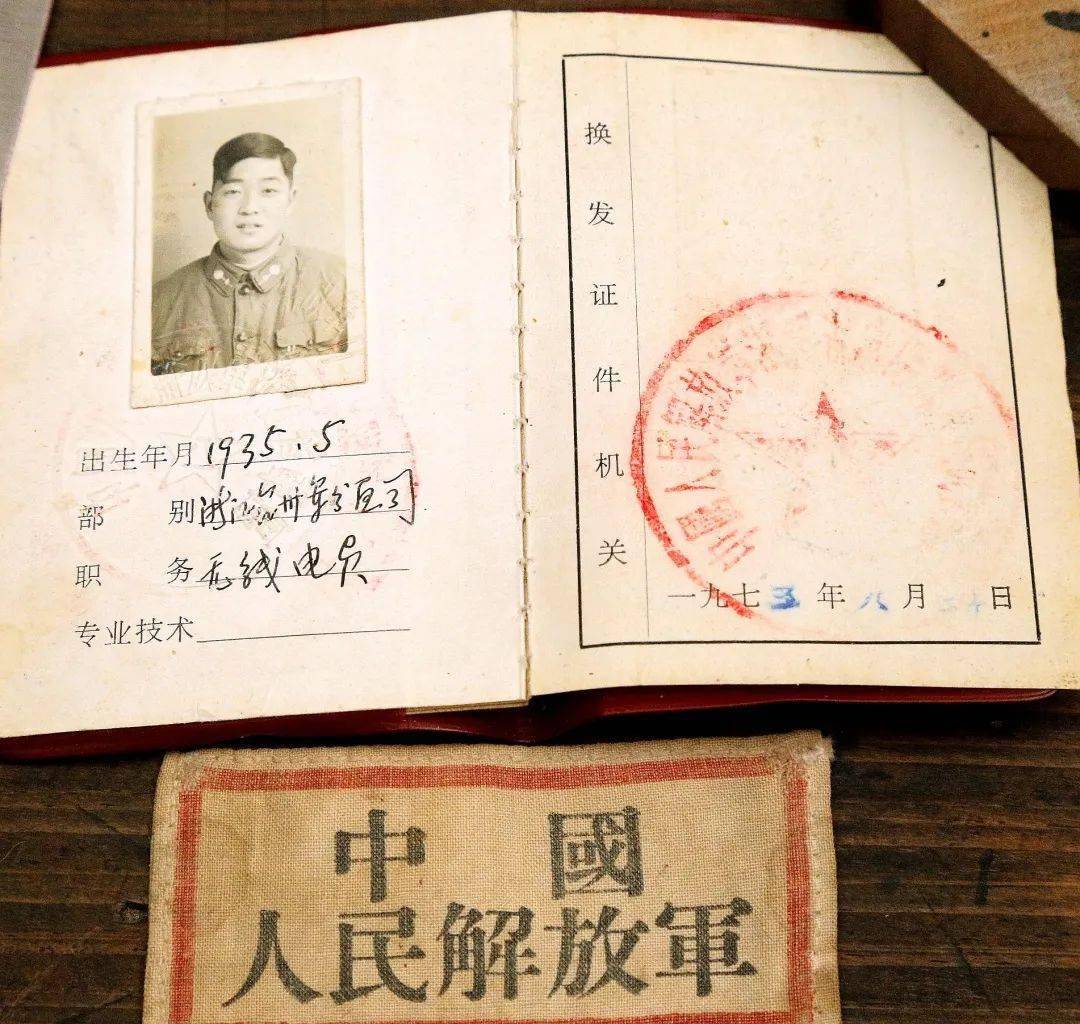 出生年月 1935.5
部别 浙江台州军分区司
职务 无线电员
专业技术
换发证件机关
中国人民解放
一九七三年八月二十日
中國
人民解放軍